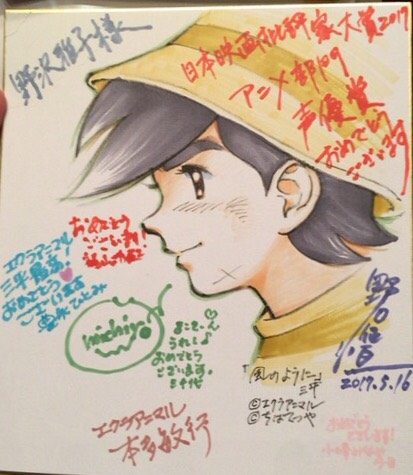 野沢雅子様
日本映画批評家大賞2017
アニメ部門
声優賞
おめでとう
ございます
おめでとう
ございます!
エクラアニマル
三平最高!
おめでとう
ございます
michiyo
よこてーん
うれしい♪
おめでとう
ございます。
三千代
「風のように」
三平
©エクラアニマル
©ちばてつや
2017.5.16
エクラアニマル
本多敏行
おめでとう
ございます!